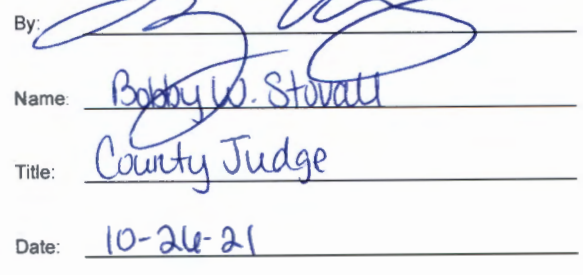 By:
Name: Bobby W. Stovall
Title: County Judge
Date: 10-26-21